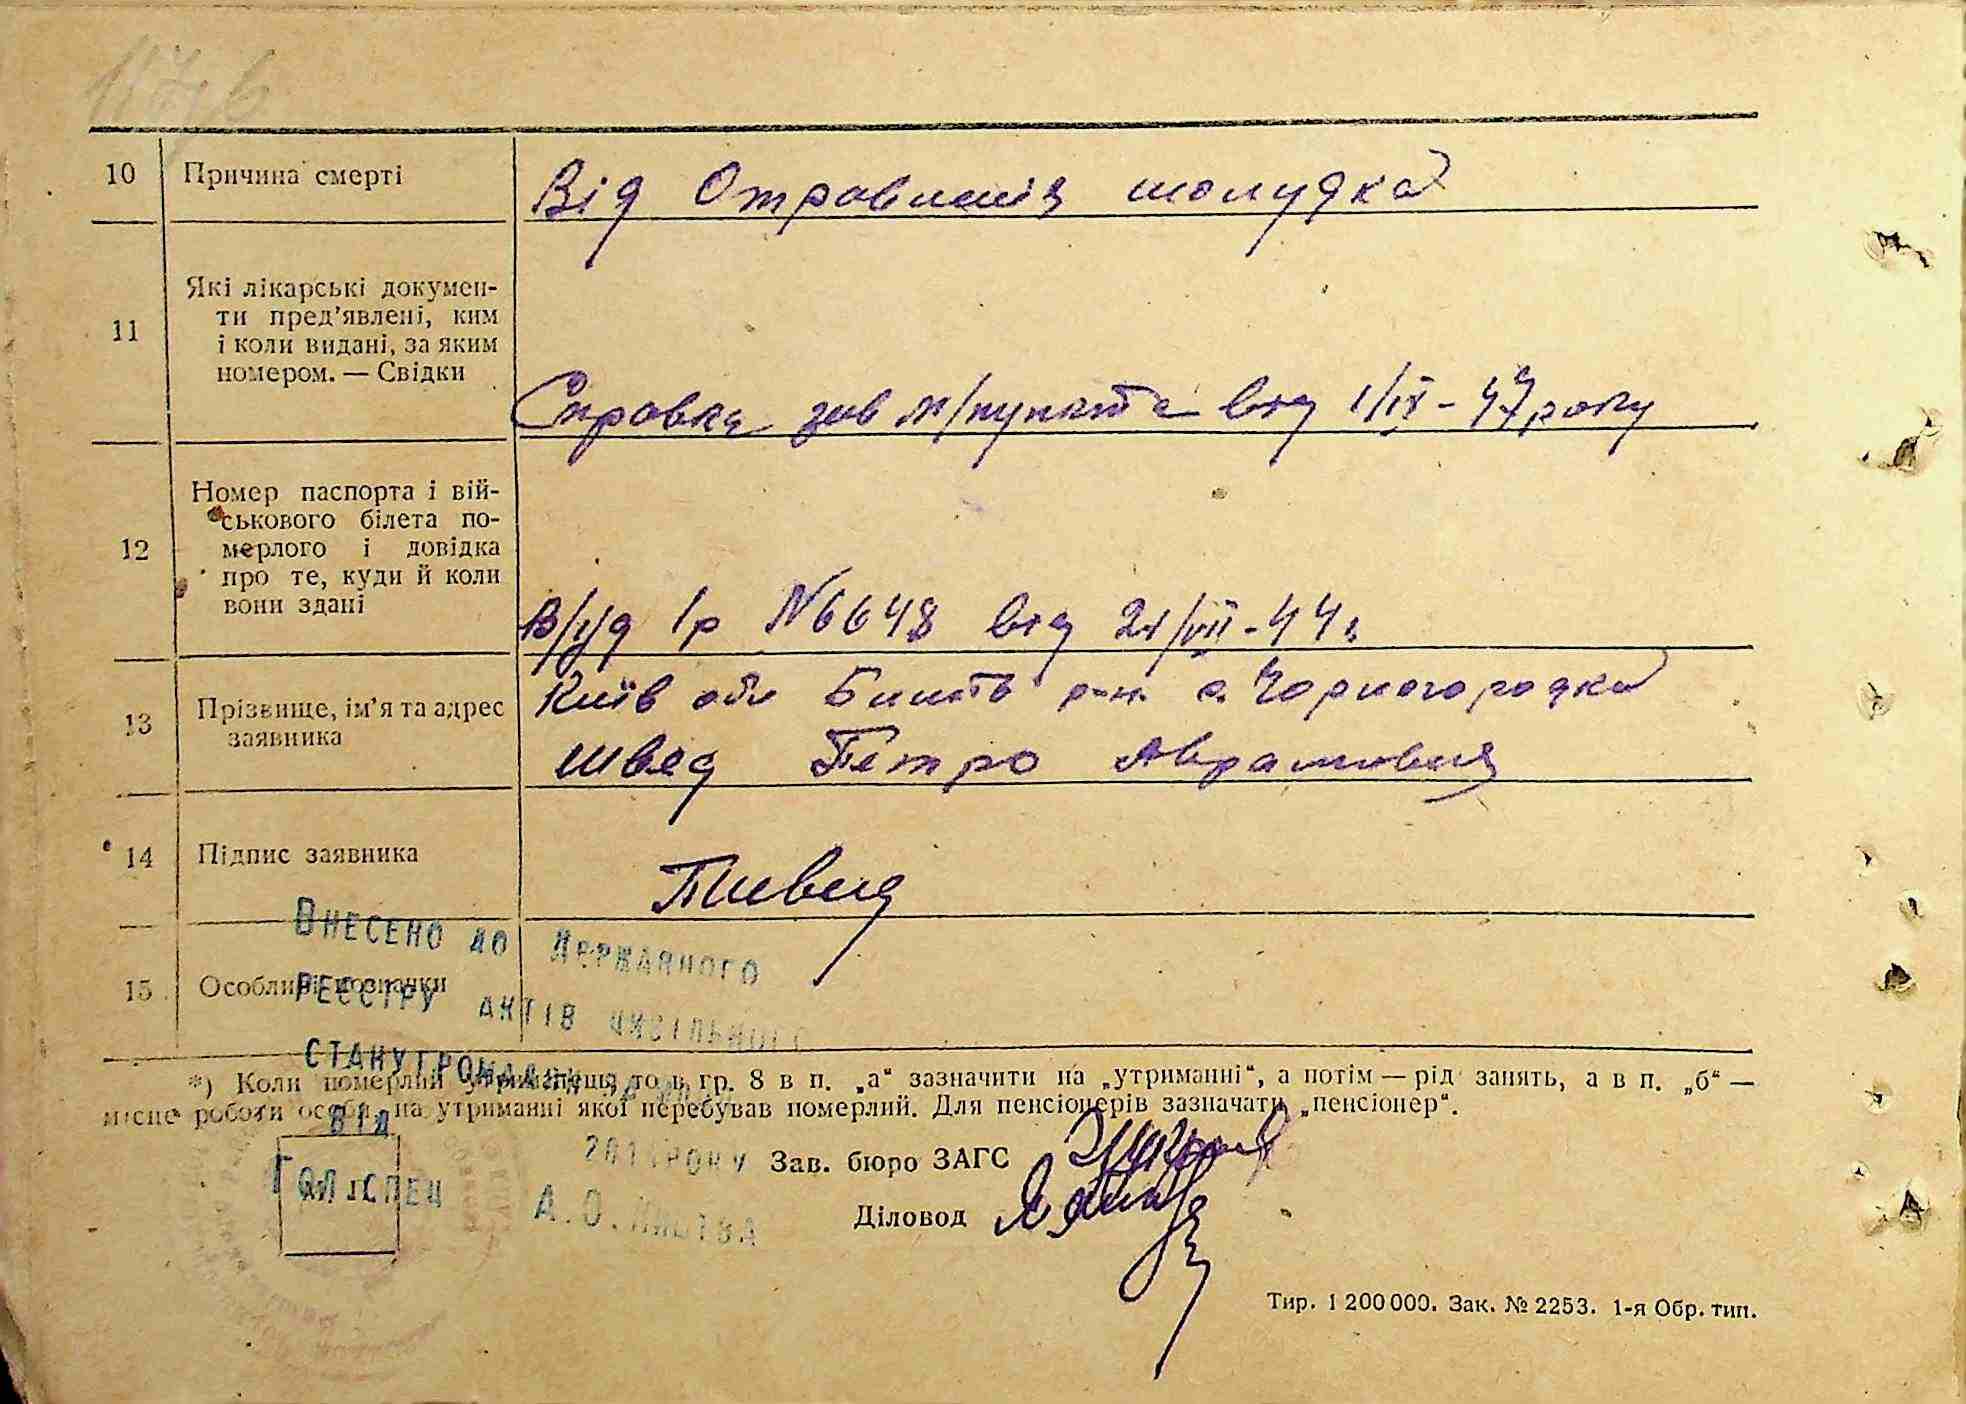 117
10 Причина смерті
Від Отравленія шолудка
11 Які лікарські докумен-
ти пред’явлені, ким
і коли видані, за яким
номером. — Свідки
Справка зав м/пункта від 1/IX - 47 року
12 Номер паспорта і вій-
ськового білета по-
мерлого і довідка
про те, куди й коли
вони здані
В/у/д 1р № 6648 від 21/VII - 44 г.
13 Прізвище, ім’я та адрес
заявника
Київ обл Бишів р-н с. Чорногородка
Швед Петро Аврамович
14 Підпис заявника
Внесено до державного
15 Особливі позначки
реєстру актів цивільного
стану громадян за №
*) Коли померлий утриманець, то в гр. 8 в п. „а“ зазначити на „утриманні“, а потім — рід занять, а в п. „б“ —
місце роботи особи, на утриманні якої перебував померлий. Для пенсіонерів зазначати „пенсіонер“.
від
року
Зав. бюро ЗАГС
Гол. спец
А.О.
Діловод
Тир. 1 200 000. Зак. № 2253. 1-я Обр. тип.